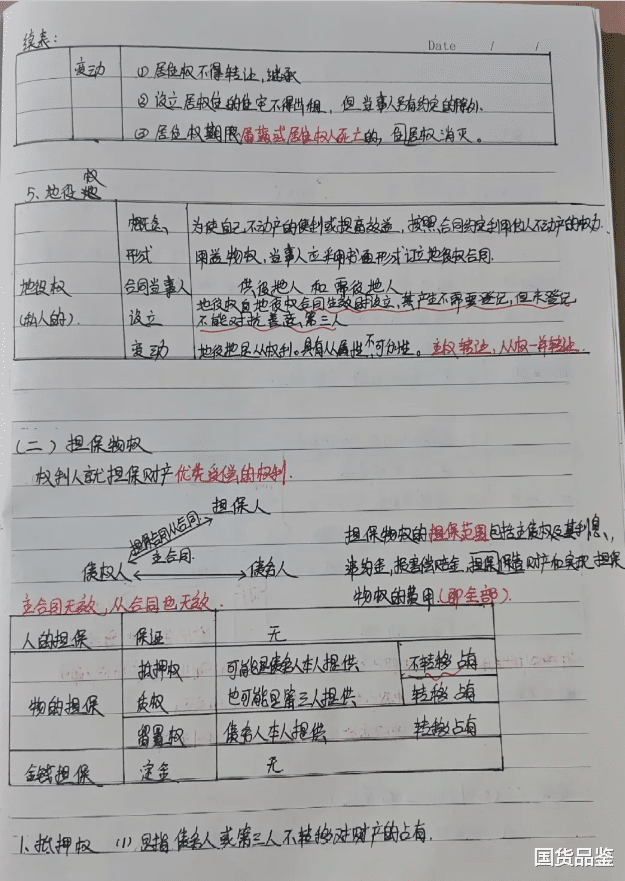 续表:
Date / /
变动 ① 居住权不得转让,继承
② 设立居权住的住宅不得出租,但当事人另有约定的除外.
③ 居住权期限届满或居住权人死亡的,居权消灭。
5、地役权
概念、 为使自己不动产的便利或提高效益,按照合同约定利用他人不动产的权力.
形式 用益物权,当事人应采用书面形式订立地役权合同.
地役权 合同当事人 供役地人 和 需役地人
(私人的). 设立 地役权自地役权合同生效时设立,其产生不需要登记,但未登记
不能对抗善意,第三人
变动 地役地是从权利。具有从属性,不可分性。主权转让,从权一样转让.
(二) 担保物权
权利人就担保财产优先受偿的权利.
担保人
担保合同从合同
主合同
债权人 债务人
担保物权的担保范围包括主债权及其利息、
违约金,损害偿赔金,担保保管财产和实现担保
物权的费用(即全部).
主合同无效,从合同也无效.
人的担保 保证 无
物的担保 抵押权 可能是债务人本人提供、 不转移占有
质权 也可能是第三人提供、 转移占有
留置权 债务人本人提供、 转移占有
金钱担保 定金 无
1、抵押权 (1) 是指债务人或第三人不转移对财产的占有.
国货品鉴